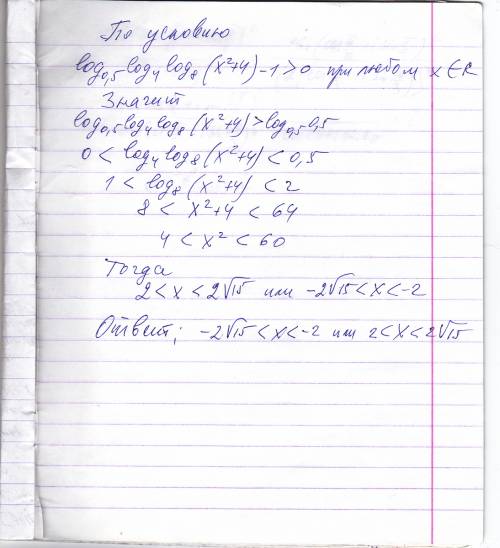 По условию
log₀,₅log₄log₈(x²+4)-1>0 при любом x∈R
Значит
log₀,₅log₄log₈(x²+4)>log₀,₅0,5
0<log₄log₈(x²+4)<0,5
1<log₈(x²+4)<2
8<x²+4<64
4<x²<60
Тогда
2<x<2√15 или -2√15<x<-2
Ответ; -2√15<x<-2 или 2<x<2√15